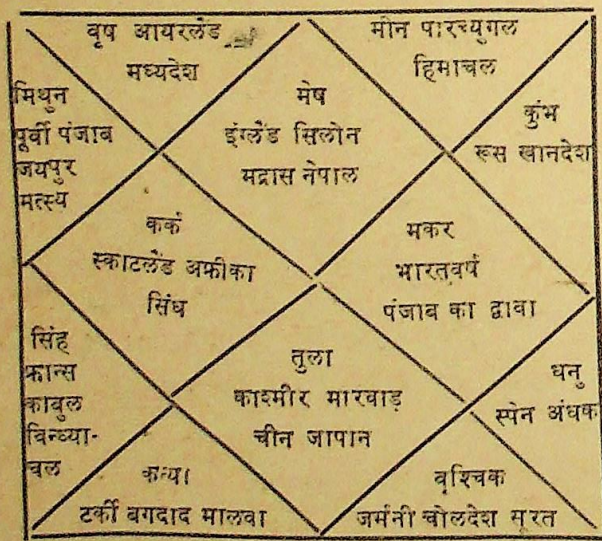 वृष आयरलैंड
मध्यदेश
मीन पारच्युगल
हिमाचल
मिथुन
पूर्वी पंजाब
जयपुर
मत्स्य
मेष
इंग्लैंड सिलोन
मद्रास नेपाल
कुंभ
रूस खानदेश
कर्क
स्काटलैंड अफ्रीका
सिंध
मकर
भारतवर्ष
पंजाब का द्वाबा
सिंह
फ्रान्स
काबुल
विन्ध्या-
चल
तुला
काश्मीर मारवाड़
चीन जापान
धनु
स्पेन अंधक
कन्या
टर्की बगदाद मालवा
वृश्चिक
जर्मनी चोलदेश सूरत